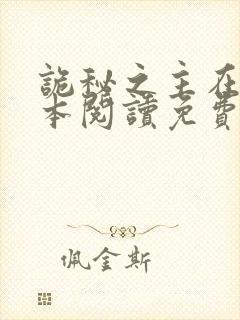 詭秘之主在
本閱讀免費
佩金斯